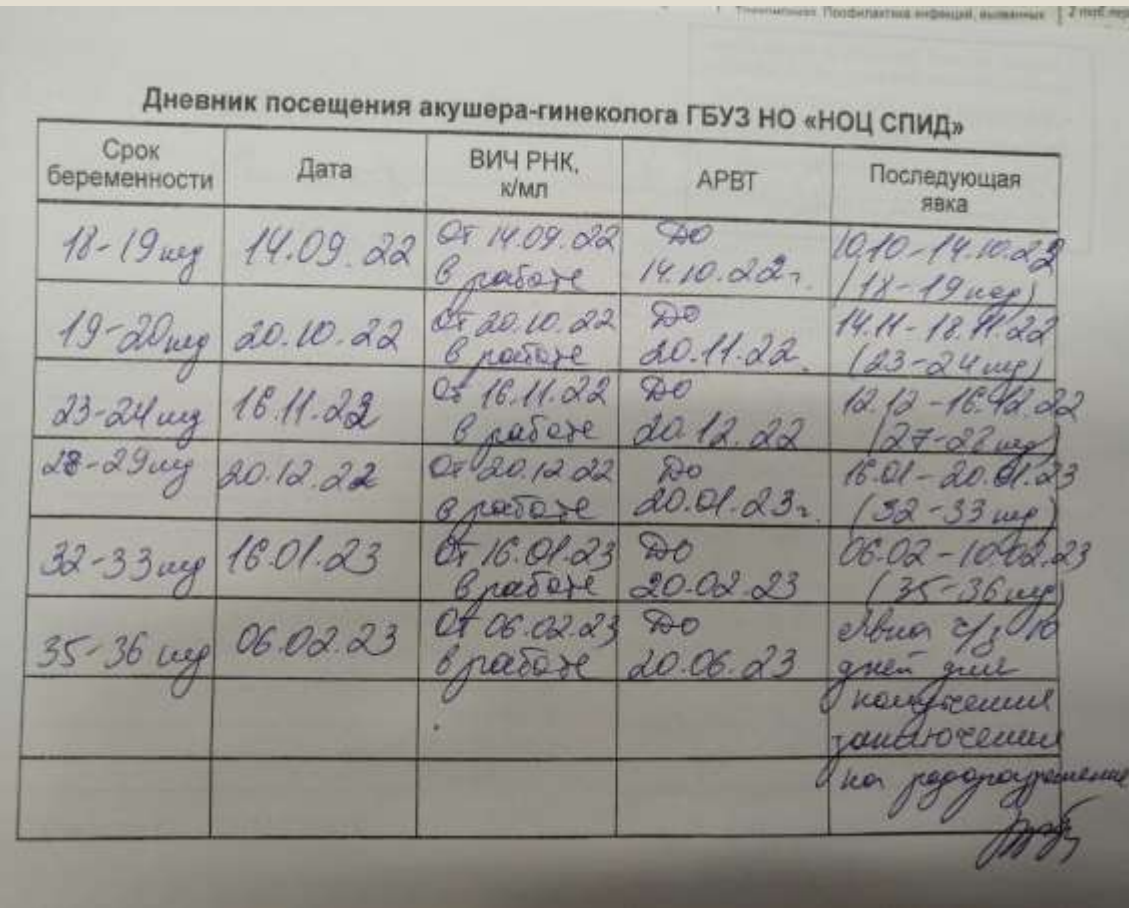 Профилактика инфекций, вызванных
Дневник посещения акушера-гинеколога ГБУЗ НО «НОЦ СПИД»
Срок беременности | Дата | ВИЧ РНК, к/мл | АРВТ | Последующая явка
18-19 нед | 14.09.22 | От 14.09.22 в работе | До 14.10.22г. | 10.10-14.10.22 (18-19 нед)
19-20 нед | 20.10.22 | От 20.10.22 в работе | До 20.11.22. | 14.11-18.11.22 (23-24 нед)
23-24 нед | 16.11.22 | От 16.11.22 в работе | До 20.12.22 | 12.12-16.12.22 (27-28 нед)
28-29 нед | 20.12.22 | От 20.12.22 в работе | До 20.01.23г. | 16.01-20.01.23 (32-33 нед)
32-33 нед | 16.01.23 | От 16.01.23 в работе | До 20.02.23 | 06.02-10.02.23 (35-36 нед)
35-36 нед | 06.02.23 | От 06.02.23 в работе | До 20.06.23 | Явка ч/з 10 дней для
получения
заключения
на родоразрешение